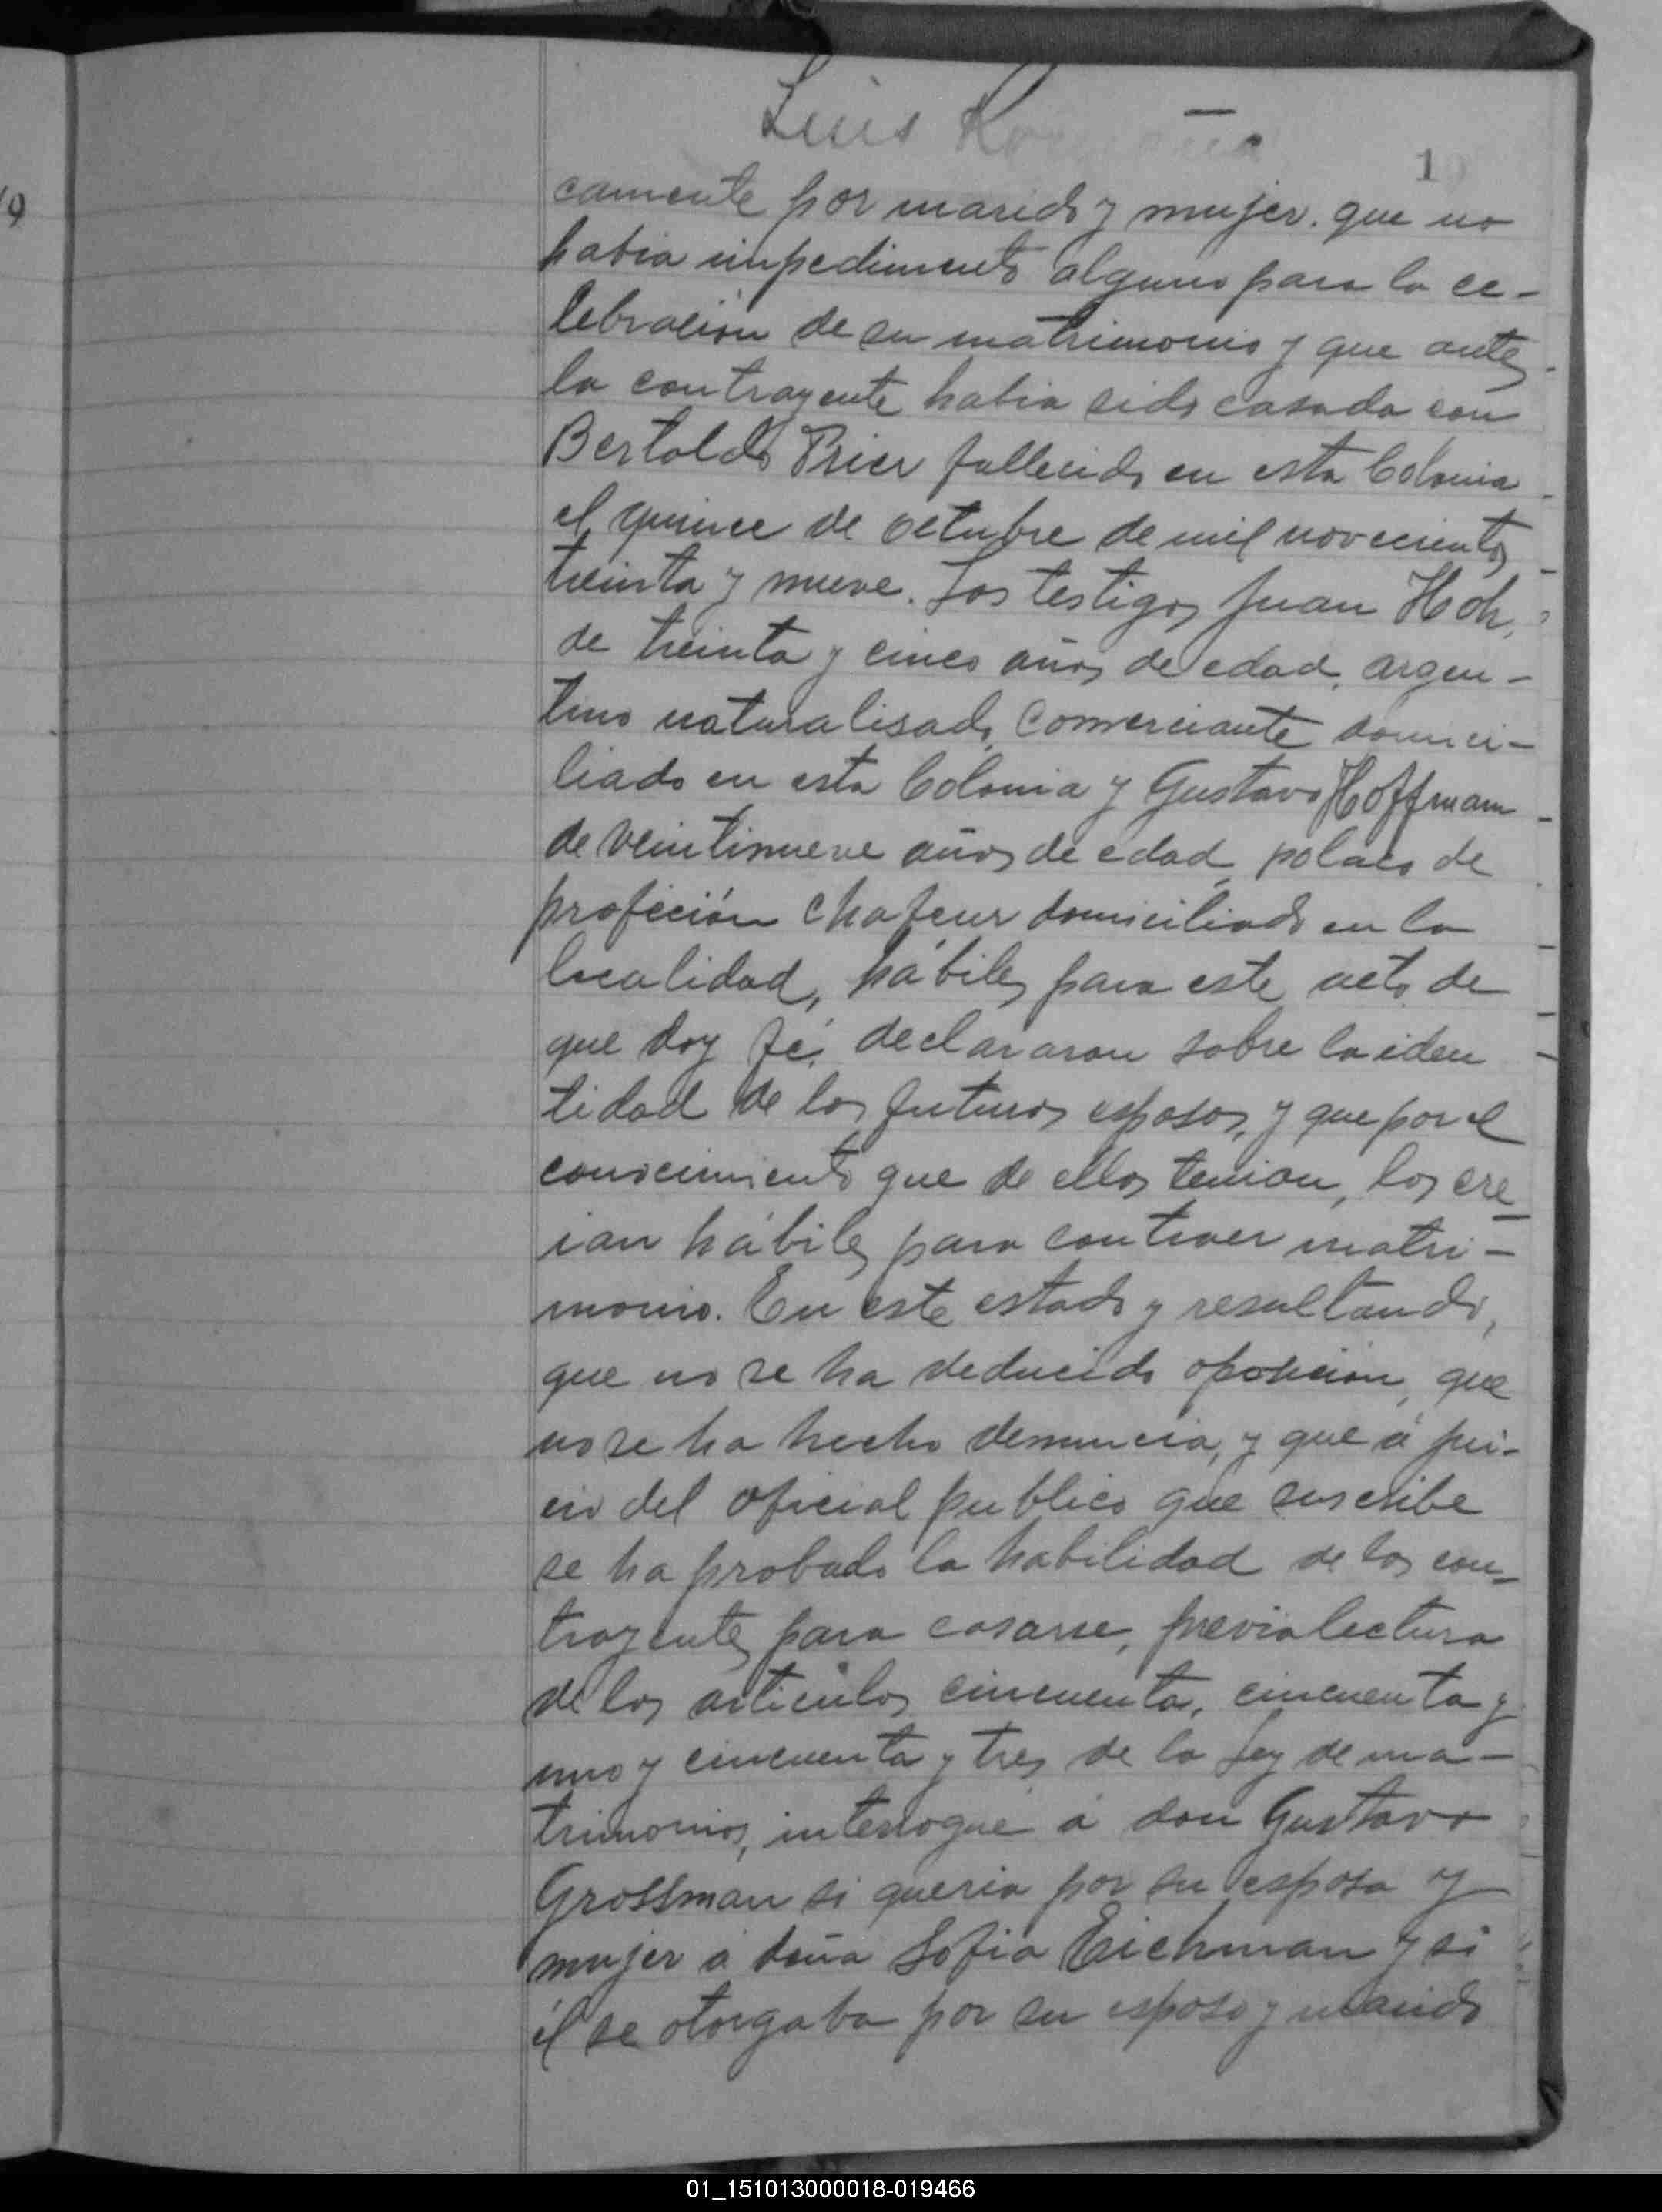 Luis
19
10
camente por marido y mujer. que no
habia impedimento alguno para la ce-
lebración de su matrimonio y que antes
la contrayente habia sido casada con
Bertoldo Prier fallecido en esta Colonia
el quince de octubre de mil novecientos
treinta y nueve. Los testigos Juan Hoh,
de treinta y cinco años de edad, argen-
tino naturalisado, comerciante domici-
liado en esta Colonia y Gustavo Hoffmam
de veintinueve años de edad, polaco de
profeción chofeur domiciliado en la
localidad, hábiles para este acto de
que doy fé, declararon sobre la iden
tidad de los futuros esposos, y que por el
conocimiento que de ellos tenian, los cre_
ian hábiles para contraer matri-
monio. En este estado y resultando,
que no se ha deducido oposicion, que
no se ha hecho denuncia, y que á jui-
cio del oficial publico que suscribe
se ha probado la habilidad de los con-
trayentes para casarse, previa lectura
de los articulos cincuenta, cincuenta y
uno y cincuenta y tres de la Ley de ma-
trimonios, interrogué á don Gustavo
Grossman si queria por su esposa y
mujer á doña Sofia Eichman y si
él se otorgaba por su esposo y marido
01_151013000018-019466